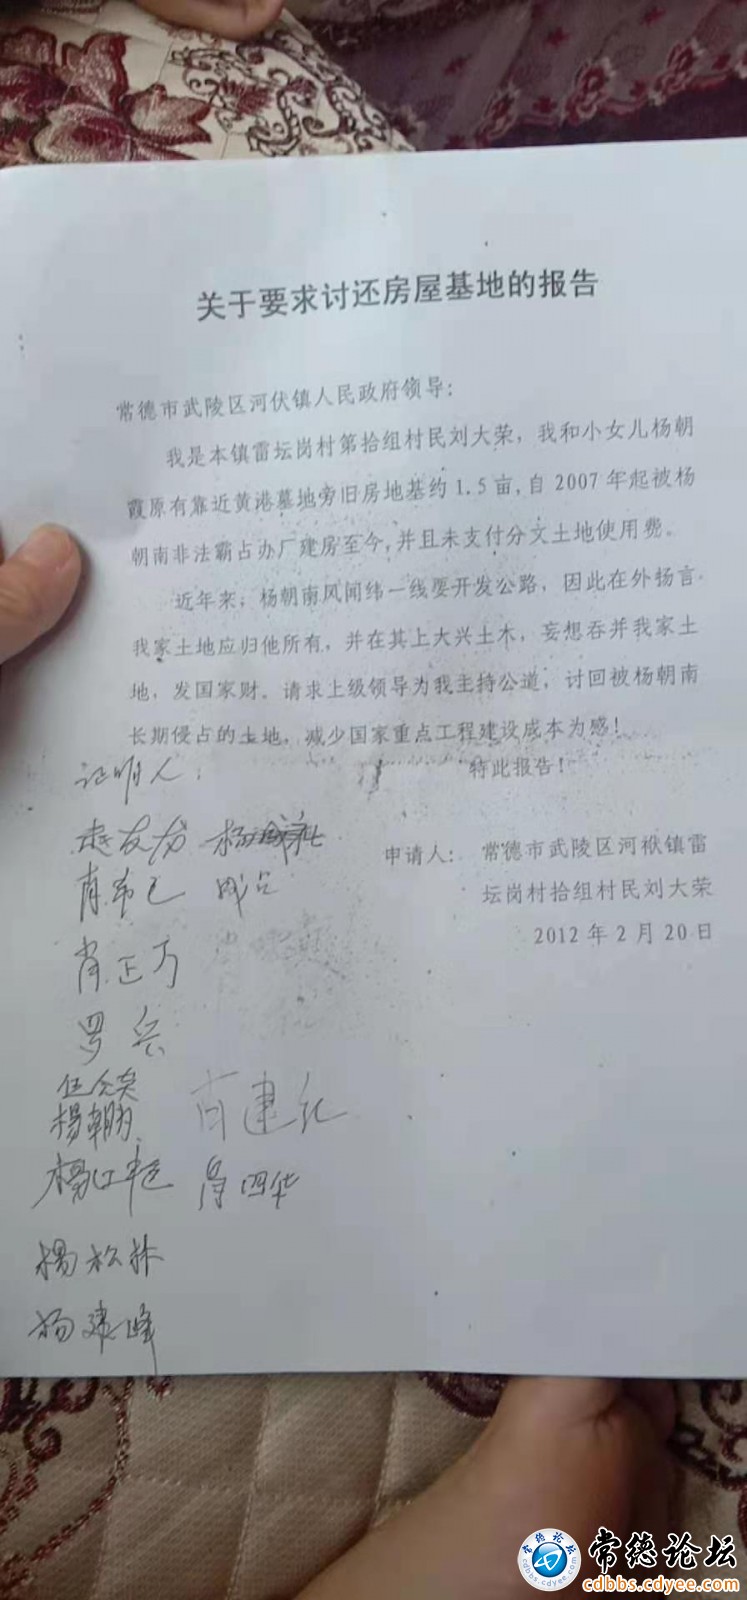 关于要求讨还房屋基地的报告
常德市武陵区河伏镇人民政府领导:
我是本镇雷坛岗村第拾组村民刘大荣，我和小女儿杨朝
霞原有靠近黄港墓地旁旧房地基约1.5亩,自2007年起被杨
朝南非法霸占办厂建房至今,并且未支付分文土地使用费。
近年来，杨朝南风闻纬一线要开发公路，因此在外扬言
我家土地应归他所有，并在其上大兴土木，妄想吞并我家土
地，发国家财。请求上级领导为我主持公道，讨回被杨朝南
长期侵占的土地，减少国家重点工程建设成本为感!
特此报告!
证明人:
申请人: 常德市武陵区河袱镇雷
坛岗村拾组村民刘大荣
2012年2月20日
肖正万
罗兵
杨朝
肖建红
肖四华
杨松林
杨建峰
常德论坛
cdbbs.cdyee.com